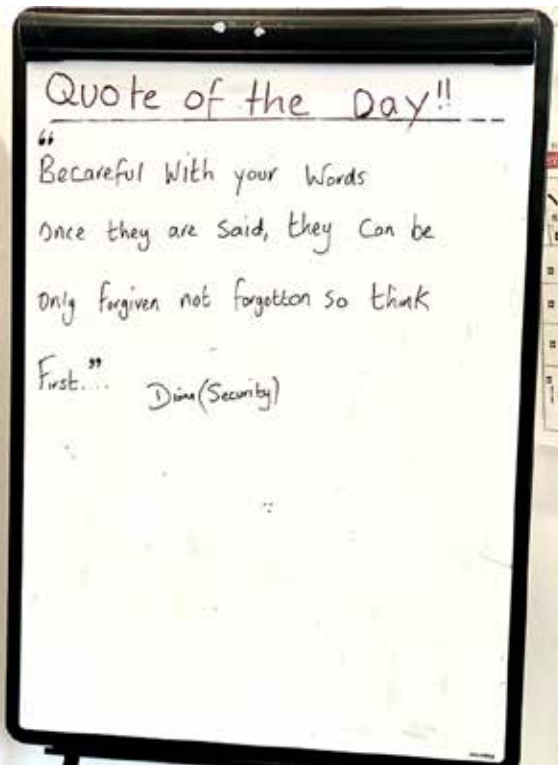 Quote of the Day!!
“
Becareful With your Words
Once they are Said, they Can be
Only forgiven not forgotton so think
First...”
(Security)